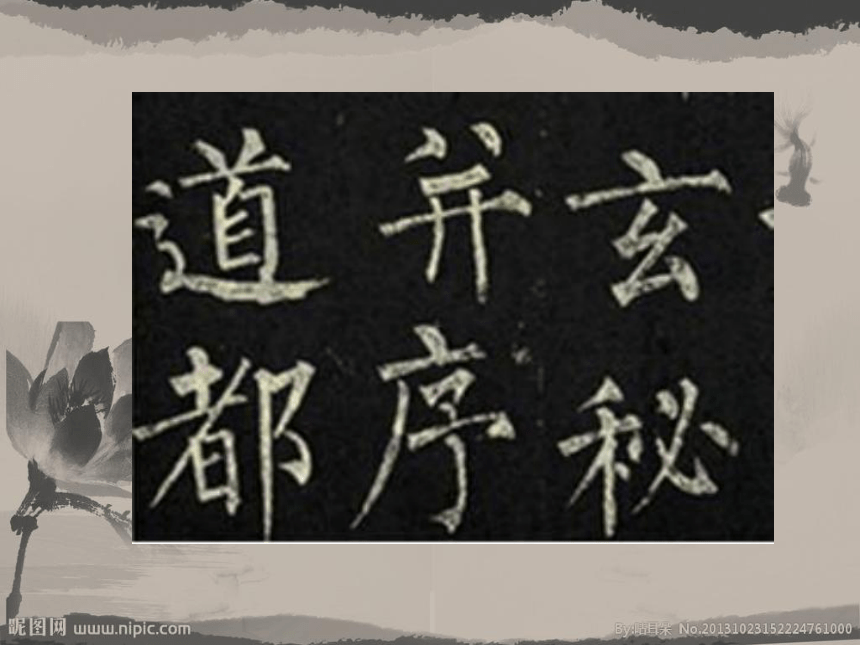 玄秘
并序
道都
昵图网 www.nipic.com
No.20131023152224761000